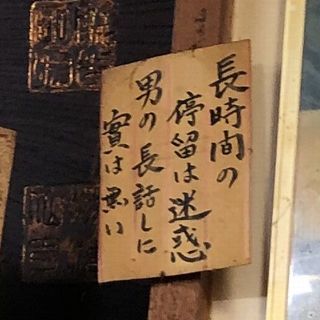 長時間の
停留は迷惑
男の長話しに
實は無い